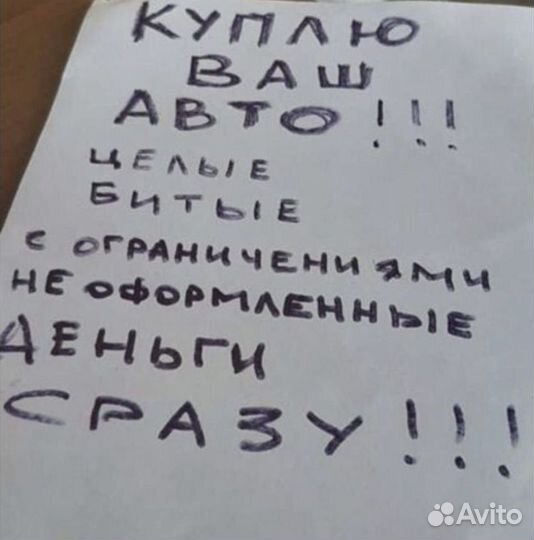 КУПЛЮ
ВАШ
АВТО!!!
ЦЕЛЫЕ
БИТЫЕ
С ОГРАНИЧЕНИЯМИ
НЕ ОФОРМЛЕННЫЕ
ДЕНЬГИ
СРАЗУ!!!
Avito